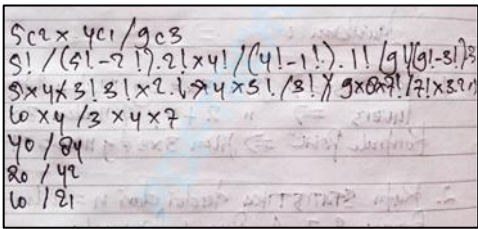 5c2 x 4c1 / 9c3
5! / (5! - 2!). 2! x 4! / (4! - 1!). 1! / 9! (9! - 3!) 3
5 x 4 x 3! 3! x 2. x 4 x 3! / 3! ) 9 x 8 x 7! / 7! x 3.2
10 x 4 / 3 x 4 x 7
40 / 84
20 / 42
10 / 21